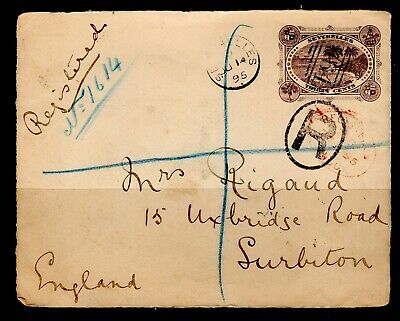 Registered
No 1614
JU 14
95
SEYCHELLES
R
Mrs Rigaud
15 Uxbridge Road
Surbiton
England